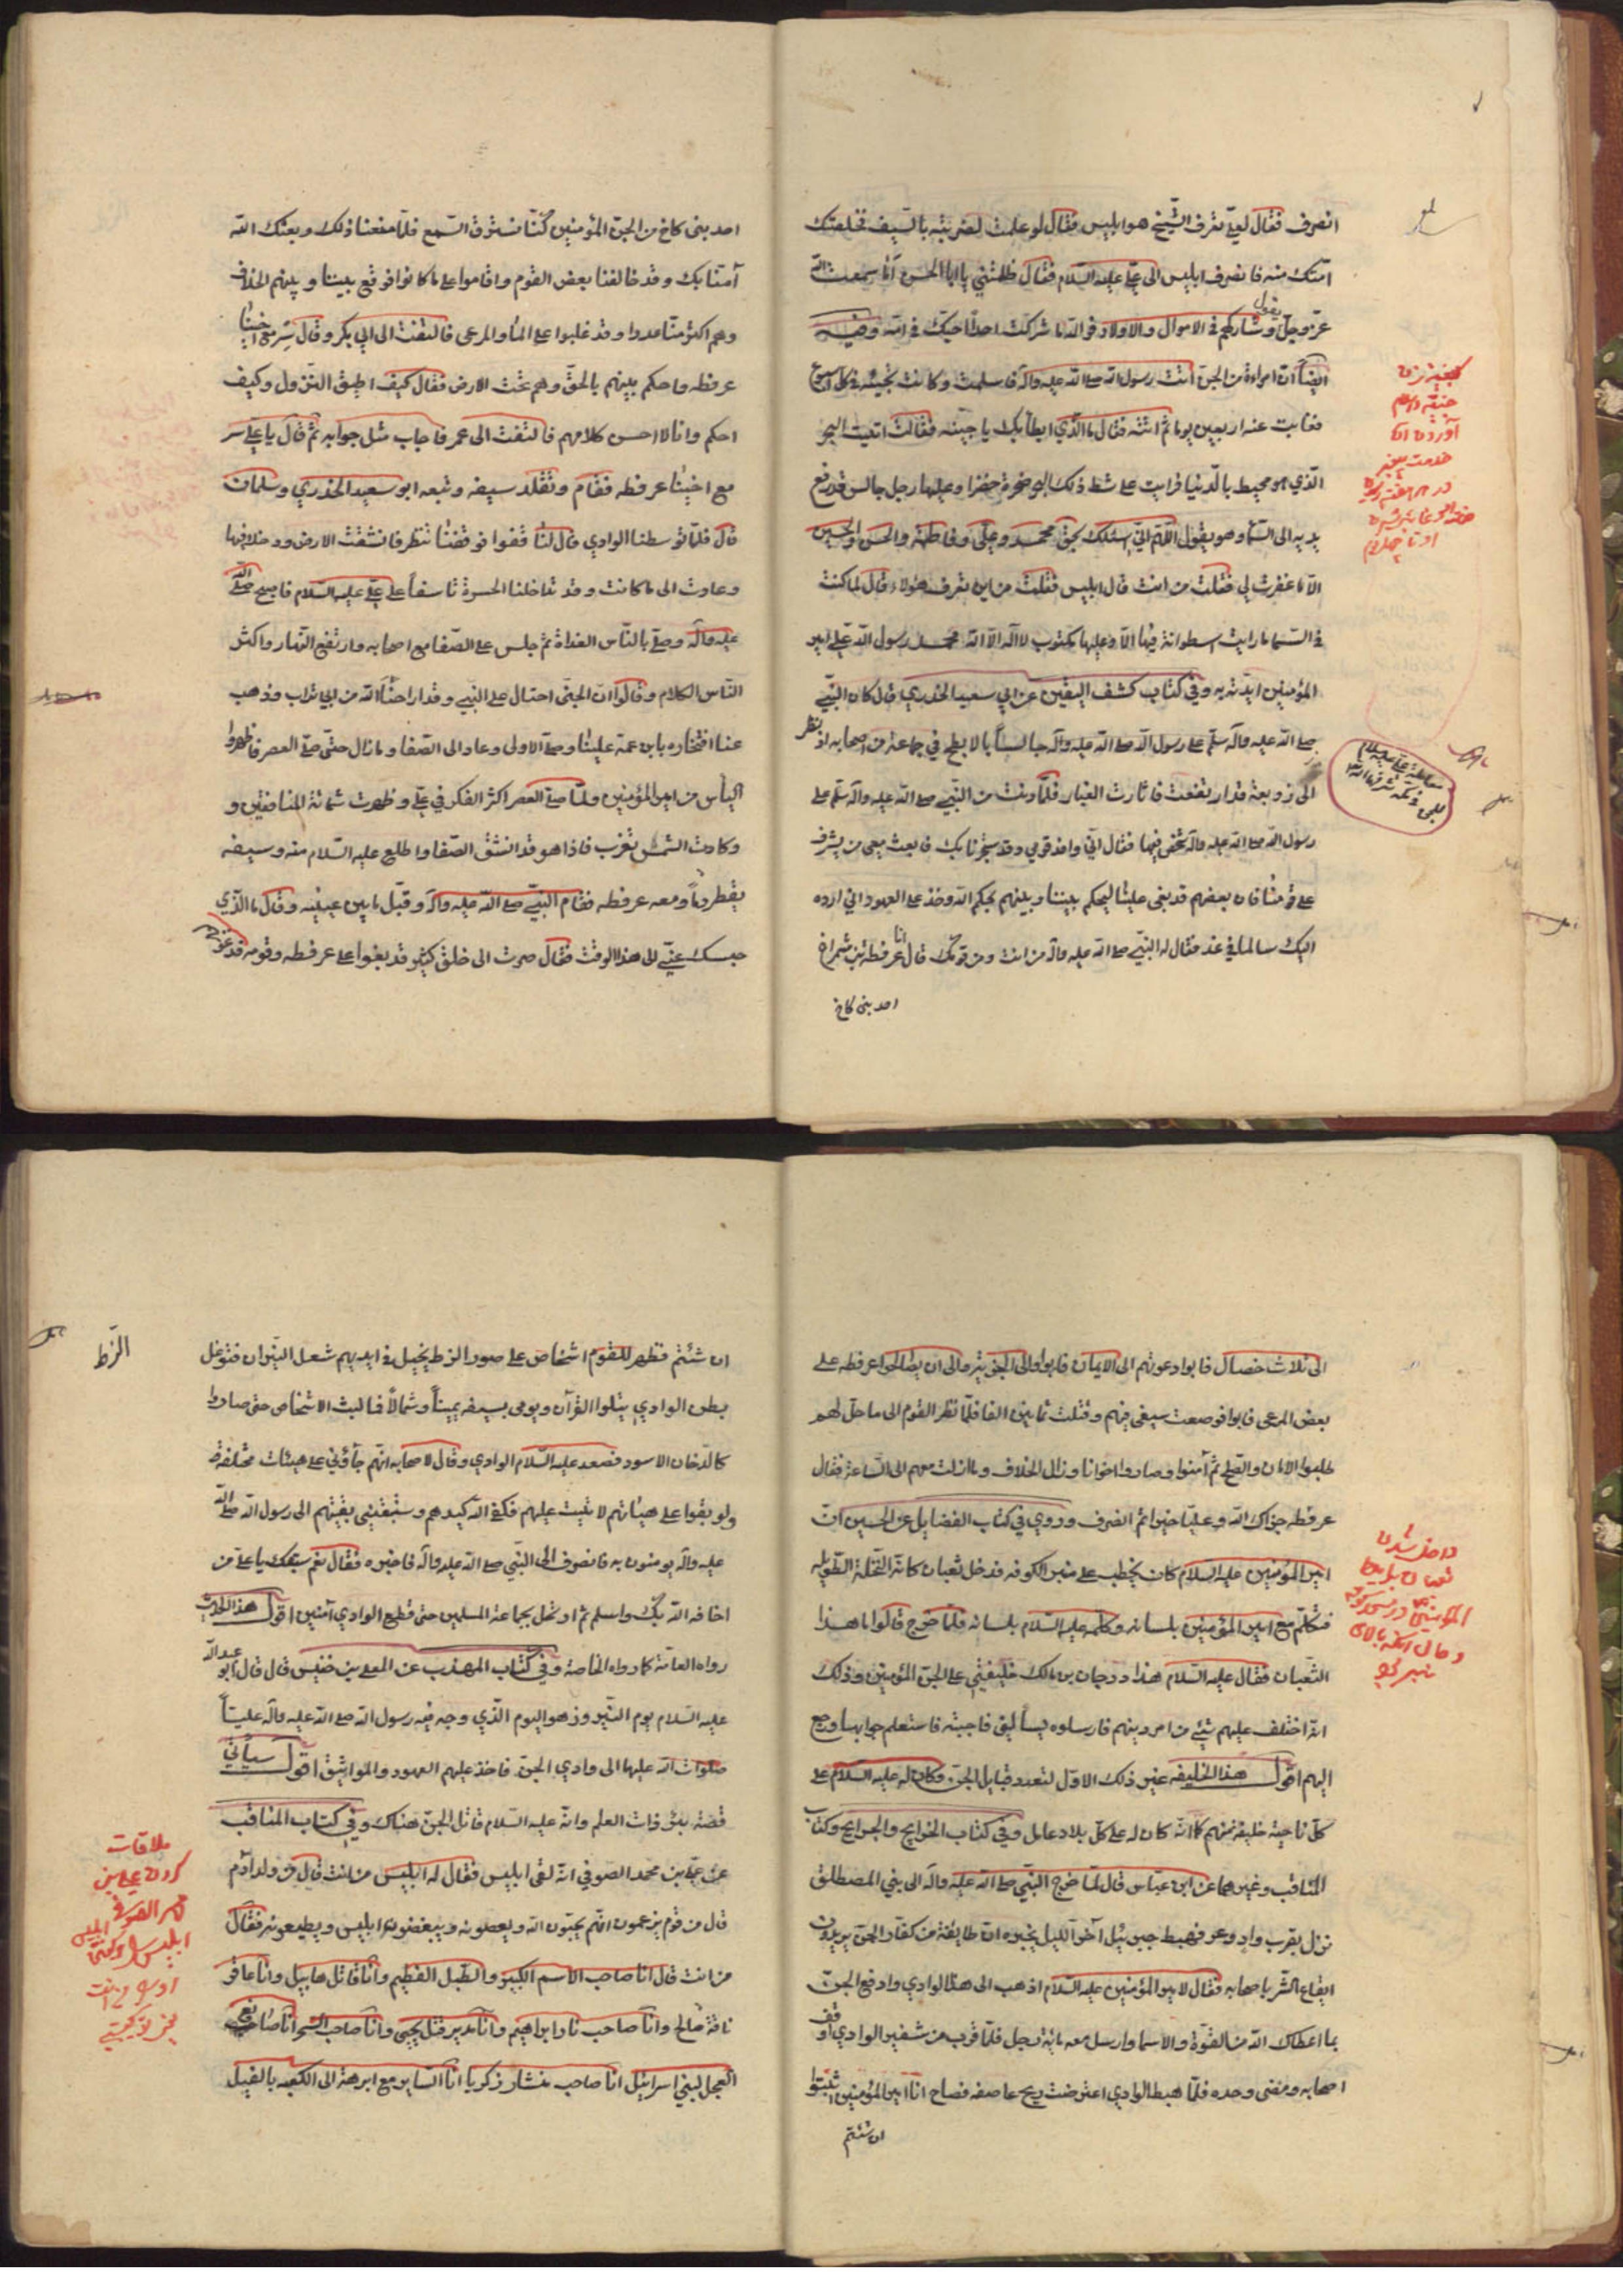 انصرف فقال لعلي تعرف الشيخ هو ابليس فقال لو علمت لضربته بالسيف فخلصت
امتك منه فانصرف ابليس الى علي عليه السلام فقال ظلمتني يا ابا الحسن اما سمعت الله
عز وجل يقول وشاركهم في الاموال والاولاد فو الله ما شركت احدا احبك في امه وفيه
ايضا ان امراة من الجن اتت رسول الله صلى الله عليه وآله فاسلمت وكانت تجيئه في كل اسبوع
فغابت عنه اربعين يوما ثم اتته فقال ما الذي ابطأ بك يا جنية فقالت اتيت البحر
الذي هو محيط بالدنيا فرايت على شط ذلك البحر صخرة خضرا وعليها رجل جالس قد رفع
يديه الى السما وهو يقول اللهم اني اسئلك بحق محمد وعلي وفاطمة والحسن والحسين
الا ما غفرت لي فقلت من انت قال ابليس فقلت من اين تعرف هؤلاء قال لما كنت
في السما ما رايت اسطوانة فيها الا وعليها مكتوب لا اله الا الله محمد رسول الله علي امير
المؤمنين ايدته به وفي كتاب كشف اليقين عن ابي سعيد الخدري قال كان النبي
صلى الله عليه وآله جالسا بالابطح في جماعة من اصحابه اذ نظر
الى زوبعة قد ارتفعت فاثارت الغبار فلما دنت من النبي صلى الله عليه وآله سلم على
رسول الله صلى الله عليه وآله شخص فيها فقال اني وافد قومي وقد استجرنا بك فابعث معي من يشرف
على قومنا فان بعضهم قد بغى علينا ليحكم بيننا وبينهم بحكم الله وخذ على العهود اني ارده
اليك سالما في غد فقال له النبي صلى الله عليه وآله من انت ومن قومك قال انا عرفطة بن شمراخ
احد بني كاخ
احد بني كاخ من الجن المؤمنين كنا نسترق السمع فلما منعنا ذلك وبعثك الله
آمنا بك وقد خالفنا بعض القوم واقاموا على ما كانوا فوقع بيننا وبينهم الخلاف
وهم اكثر منا عددا وقد غلبوا على الما والمرعى فالتفت الى ابي بكر وقال سر مع اخينا
عرفطه واحكم بينهم بالحق وهم تحت الارض فقال كيف اطيق النزول وكيف
احكم وانا لا احسن كلامهم فالتفت الى عمر فاجاب مثل جوابه ثم قال يا علي سر
مع اخينا عرفطه فقام وتقلد سيفه وتبعه ابو سعيد الخدري وسلمان
قال فلما توسطنا الوادي قال لنا قفوا فوقفنا ننظر فانشقت الارض ودخلا فيها
وعادت الى ما كانت وقد تداخلنا الحسرة تاسفا على علي عليه السلام فاصبح صلى الله
عليه وآله وصلى بالناس الغداة ثم جلس على الصفا مع اصحابه وارتفع النهار واكثر
الناس الكلام وقالوا ان الجني احتال على النبي وقد اراحنا الله من ابي تراب وذهب
عنا افتخاره بابن عمه علينا وصلى الاولى وعاد الى الصفا وما زال حتى صلى العصر فاظهروا
الياس من امير المؤمنين ولما صلى العصر اكثر الفكر في علي وظهرت شماتة المنافقين و
وكادت الشمس تغرب فاذا هو قد انشق الصفا واطلع عليه السلام منه وسيفه
يقطر دما ومعه عرفطه فقام النبي صلى الله عليه وآله وقبل ما بين عينيه وقال ما الذي
حبسك عني الى هذا الوقت فقال صرت الى خلق كثير قد بغوا على عرفطه وقومه فدعوتهم
الى ثلاث خصال فابوا دعوتهم الى الايمان فابوا والى الجزية والى ان يصالحوا عرفطه على
بعض المرعى فابوا فوضعت سيفي فيهم وقتلت ثمانين الفا فلما نظر القوم الى ما حل لهم
طلبوا الامان والصلح ثم آمنوا وصاروا اخوانا وزال الخلاف وما زلت معهم الى الساعة فقال
عرفطه جزاك الله وعليا خيرا ثم انصرف وروي في كتاب الفضايل عن الحسين ان
امير المؤمنين عليه السلام كان يخطب على منبر الكوفه فدخل ثعبان كانه النخلة الطويله
فتكلم مع امير المؤمنين بلسانه وكلمه عليه السلام بلسانه فلما خرج قالوا ما هذا
الثعبان فقال عليه السلام هذا درجان بن مالك خليفتي على الجن المؤمنين وذلك
انه اختلف عليهم شيء من امر دينهم فارسلوه ليسألني فاجبته فاستعلم جوابها ورجع
اليهم اقول هذا الخليفه غير ذلك الاول لتعدد قبايل الجن وكان له عليه السلام على
كل ناحية خليفة منهم كما انه كان له على كل بلاد عامل وفي كتاب الخرايج والجرايح وكتاب
المناقب وغيرهما عن ابن عباس قال لما خرج النبي صلى الله عليه وآله الى بني المصطلق
نزل بقرب واد وعر فهبط جبرئيل آخر الليل يخبره ان طايفة من كفار الجن يريدون
ايقاع الشر باصحابه فقال لامير المؤمنين عليه السلام اذهب الى هذا الوادي وادفع الجن
بما اعطاك الله من القوة والاسما وارسل معه مائة رجل فلما قرب من شفير الوادي اوقف
اصحابه ومضى وحده فلما هبط الوادي اعترضت ريح عاصفه فصاح انا امير المؤمنين اثبتوا
ان شئتم
ان شئتم فظهر للقوم اشخاص على صور الزط يخيل في ايديهم شعل النيران فتوغل
بطن الوادي يتلوا القرآن ويومى بسيفه يمينا وشمالا فما لبث الاشخاص حتى صاروا
كالدخان الاسود فصعد عليه السلام الوادي وقال لاصحابه انهم جآؤني على هيئات مختلفة
ولو بقوا على هيئاتهم لاتيت عليهم فكفى الله كيدهم وستبقيني بقيتهم الى رسول الله صلى الله
عليه وآله يومنون به فانصرف الى النبي صلى الله عليه وآله فاخبره فقال نعم سبقك يا علي من
اخافه الله بك واسلم ثم ارتحل بجماعة المسلمين حتى قطع الوادي آمنين اقول هذا الحديث
رواه العامة كما رواه الخاصة وفي كتاب المهذب عن المعلى بن خنيس قال قال ابو عبد الله
عليه السلام يوم النيروز هو اليوم الذي وجه فيه رسول الله صلى الله عليه وآله عليا
صلوات الله عليهما الى وادي الجن فاخذ عليهم العهود والمواثيق اقول سيأتي
قصة بئر ذات العلم وانه عليه السلام قاتل الجن هناك وفي كتاب المناقب
عن علي بن محمد الصوفي انه لقى ابليس فقال له ابليس من انت قال من ولد آدم
قال من قوم يزعمون انهم يحبون الله ويعصونه ويبغضون ابليس ويطيعونه فقال
من انت قال انا صاحب الاسم الكبير والطبل العظيم وانا قاتل هابيل وانا عاقر
ناقة صالح وانا صاحب نار ابراهيم وانا مدبر قتل يحيى وانا صاحب السحر انا صانع
العجل لبني اسرائيل انا صاحب منشار زكريا انا الساير مع ابرهة الى الكعبه بالفيل
الزط
ملاقات
كردن علي بن
محمد الصوفي